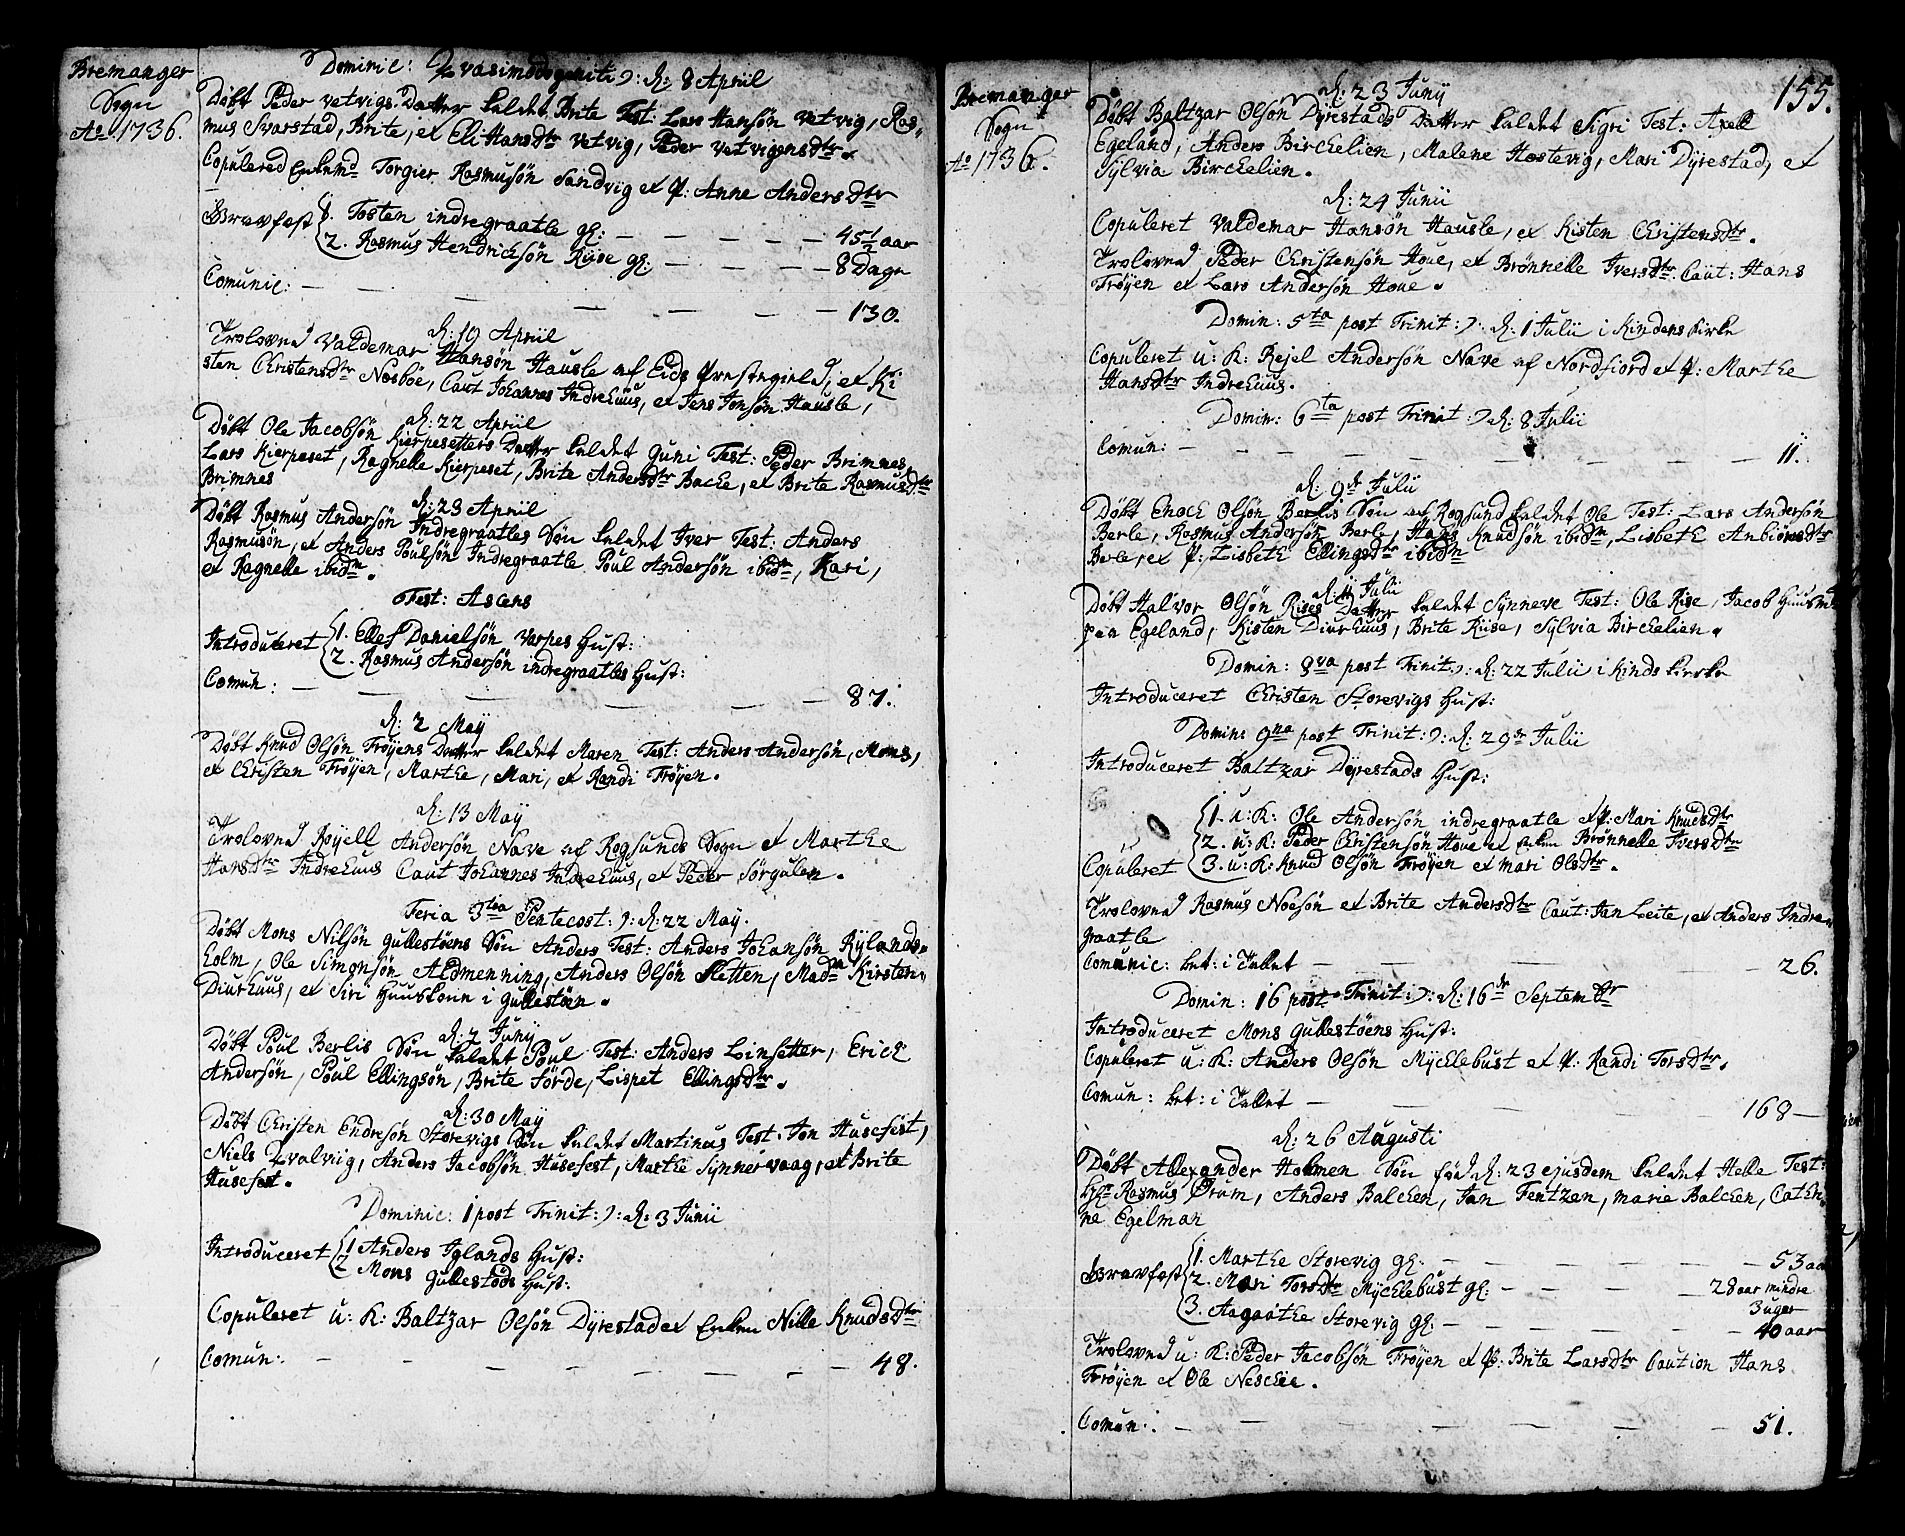 Bremanger
Sogn
Ao 1736.
Dominic: Qvasimodogeniti ɔ: d: 8 Apriil
Døbt Peder Vetvigs Datter kaldet Brite Test: Lars Hansøn Vetvig, Ras-
mus Svarstad, Brite, et Eli Hansdtr Vetvig, Peder Vetvigensdtr.
Copulered Enkemd Torgier Rasmusøn Sandvig et P: Anne Andersdtr
Gravfæst 1. Tosten indregraatle gl: — — — — — 45½ aar
2. Rasmus Hendrichsøn Riise gl: — — — — 8 Dage
Comunic: — — — — — — 130.
d: 19 Apriil
Troloved Valdemar Hansøn Hausle af Eids Præstegield, et Ki
sten Christensdtr Nosbøe, Caut Johannes Indrehuus, et Jens Jensøn Hausle,
d: 22 Apriil
Døbt Ole Jacobsøn Kierpesetters Datter kaldet Guni Test: Peder Brimnes,
Lars Kierpeset, Ragnelle Kierpeset, Brite Andersdtr Backe, et Brite Rasmusdtr
Brimnes
d: 23 Apriil
Døbt Rasmus Andersøn Indregraatles Søn kaldet Iver Test: Anders
Rasmusøn, et Anders Poulsøn Indregraatle Poul Andersøn ibidm, Kari,
et Ragnelle ibidm.
Fest: Ascens
Introduceret 1. Ellef Danielsøn Varpes Hust:
2. Rasmus Andersøn indregraatles Hust:
Comun: — — — — — — 87.
d: 2 Maÿ
Døbt Knud Olsøn Frøyens Datter kaldet Maren Test: Anders Andersøn, Mons,
et Christen Frøyen, Marthe, Mari, et Randi Frøyen.
d: 13 Maÿ
Troloved Rejell Andersøn Nave af Rogsunds Sogn et Marthe
Hansdtr Indrehuus Caut Johannes Indrehuus, et Peder Sørgulen.
Feria 3tia Pentecost: ɔ: d: 22 Maÿ.
Døbt Mons Nilsøn Gullestøens Søn Anders Test: Anders Johansøn Rylands-
holm, Ole Simonsøn Aldmenning, Anders Olsøn Sletten, Madm Kirsten
Diurhuus, et Siri Huuskone i Gullestøen.
d: 2 Junÿ
Døbt Poul Berlis Søn kaldet Poul Test: Anders Linsetter, Erich
Andersøn, Poul Ellingsøn, Brite Førde, Lispet Ellingsdtr.
d: 30 Maÿ
Døbt Christen Endresøn Storevigs Søn kaldet Martinus Test: Jon Husefest,
Niels Qvalviig, Anders Jacobsøn Husefest, Marthe Synnervaag, et Brite
Husefest.
Dominic: 1 post Trinit: ɔ: d: 3 Junii
Introduceret 1 Anders Iglands Hust:
2 Mons Gullestøds Hust:
Copuleret u: K: Baltzar Olsøn Dyrestad et Enken Nille Knudsdtr
Comun: — — — — — — 48.
155.
Bremanger
Sogn
Ao 1736.
d: 23 Junÿ
Døbt Baltzar Olsøn Dyrestads Datter kaldet Sigri Test: Axell
Egeland, Anders Birchelien, Malene Hostevig, Mari Dyrestad, et
Sylvia Birchelien.
d: 24 Junii
Copuleret Valdemar Hansøn Hausle, et Kisten Christensdtr.
Troloved Peder Christensøn Houe, et Brønnelle Iversdtr. Caut: Hans
Frøyen et Lars Andersøn Houe.
Domin: 5ta post Trinit: ɔ: d: 1 Julii i Kindens Kirke
Copuleret u: K: Rejel Andersøn Nave af Nordfiord et P: Marthe
Hansdtr Indrehuus.
Domin: 6ta post Trinit: ɔ: d: 8 Julii
Comun: — — — — — — 11.
d: 9de Julii
Døbt Enoch Olsøn Berlis Søn af Rogsund kaldet Ole Test: Lars Andersøn
Berle, Rasmus Andersøn Berle, Hans Knudsøn ibidm, Lisbeth Anbiørnsdtr
Berle, et P: Lisbeth Ellingsdtr ibidm
d: 11 Julii
Døbt Halvor Olsøn Rises Datter kaldet Synneve Test: Ole Rise, Jacob Huusmd
paa Egeland, Kisten Diurhuus, Brite Riise, Sylvia Birchelien.
Domin: 8va post Trinit: ɔ: d: 22 Julii i Kinds Kirke
Introduceret Christen Storevigs Hust:
Domin: 9na post Trinit: ɔ: d: 29de Julii
Introduceret Baltzar Dyrestads Hust:
Copuleret 1. u: K: Ole Andersøn indregraatle et P: Mari Knudsdtr
2. u: K: Peder Christensøn Houe et Enken Brønnelle Iversdtr
3. u: K: Knud Olsøn Frøyen et Mari Olsdtr.
Troloved Rasmus Noesøn et Brite Andersdtr Caut: Jan Leite, et Anders Indre-
graatle
Comunic: bet: i Tallet — — — — — 26.
Domin: 16 post Trinit: ɔ: d: 16de Septembr
Introduceret Mons Gullestøens Hust:
Copuleret u: K: Anders Olsøn Mÿcklebust et P: Randi Torsdtr.
Comun: bet: i Tallet — — — — — 168 —
d: 26 Augusti
Døbt Allexander Holmen Søn fød d: 23 ejusdem kaldet Helle Test:
Hr Rasmus Ørum, Anders Balchen, Jan Fentzen, Marie Balchen, Cathri-
ne Egelman
Gravfæst 1. Marthe Storevig gl: — — — — — 53 aar
2. Mari Torsdtr Mÿcklebust gl: — — — 28 aar mindre
3 uger
3. Aagaathe Storevig gl: — — — — — 40 aar
Troloved u: K: Peder Jacobsøn Frøyen et P: Brite Larsdtr Caution Hans
Frøyen et Ole Neschee.
Comun: — — — — — — 51.